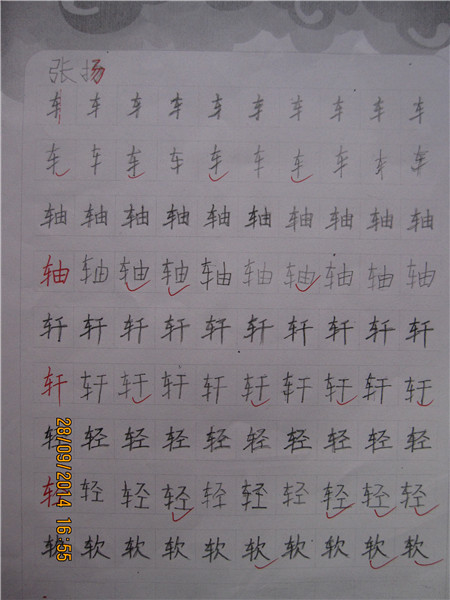 张扬
车 车 车 车 车 车 车 车 车 车
车 车 车 车 车 车 车 车 车 车
轴 轴 轴 轴 轴 轴 轴 轴 轴 轴
轴 轴 轴 轴 轴 轴 轴 轴 轴 轴
轩 轩 轩 轩 轩 轩 轩 轩 轩 轩
轩 轩 轩 轩 轩 轩 轩 轩 轩 轩
轻 轻 轻 轻 轻 轻 轻 轻 轻 轻
轻 轻 轻 轻 轻 轻 轻 轻 轻 轻
软 软 软 软 软 软 软 软 软 软
28/09/2014 16:55